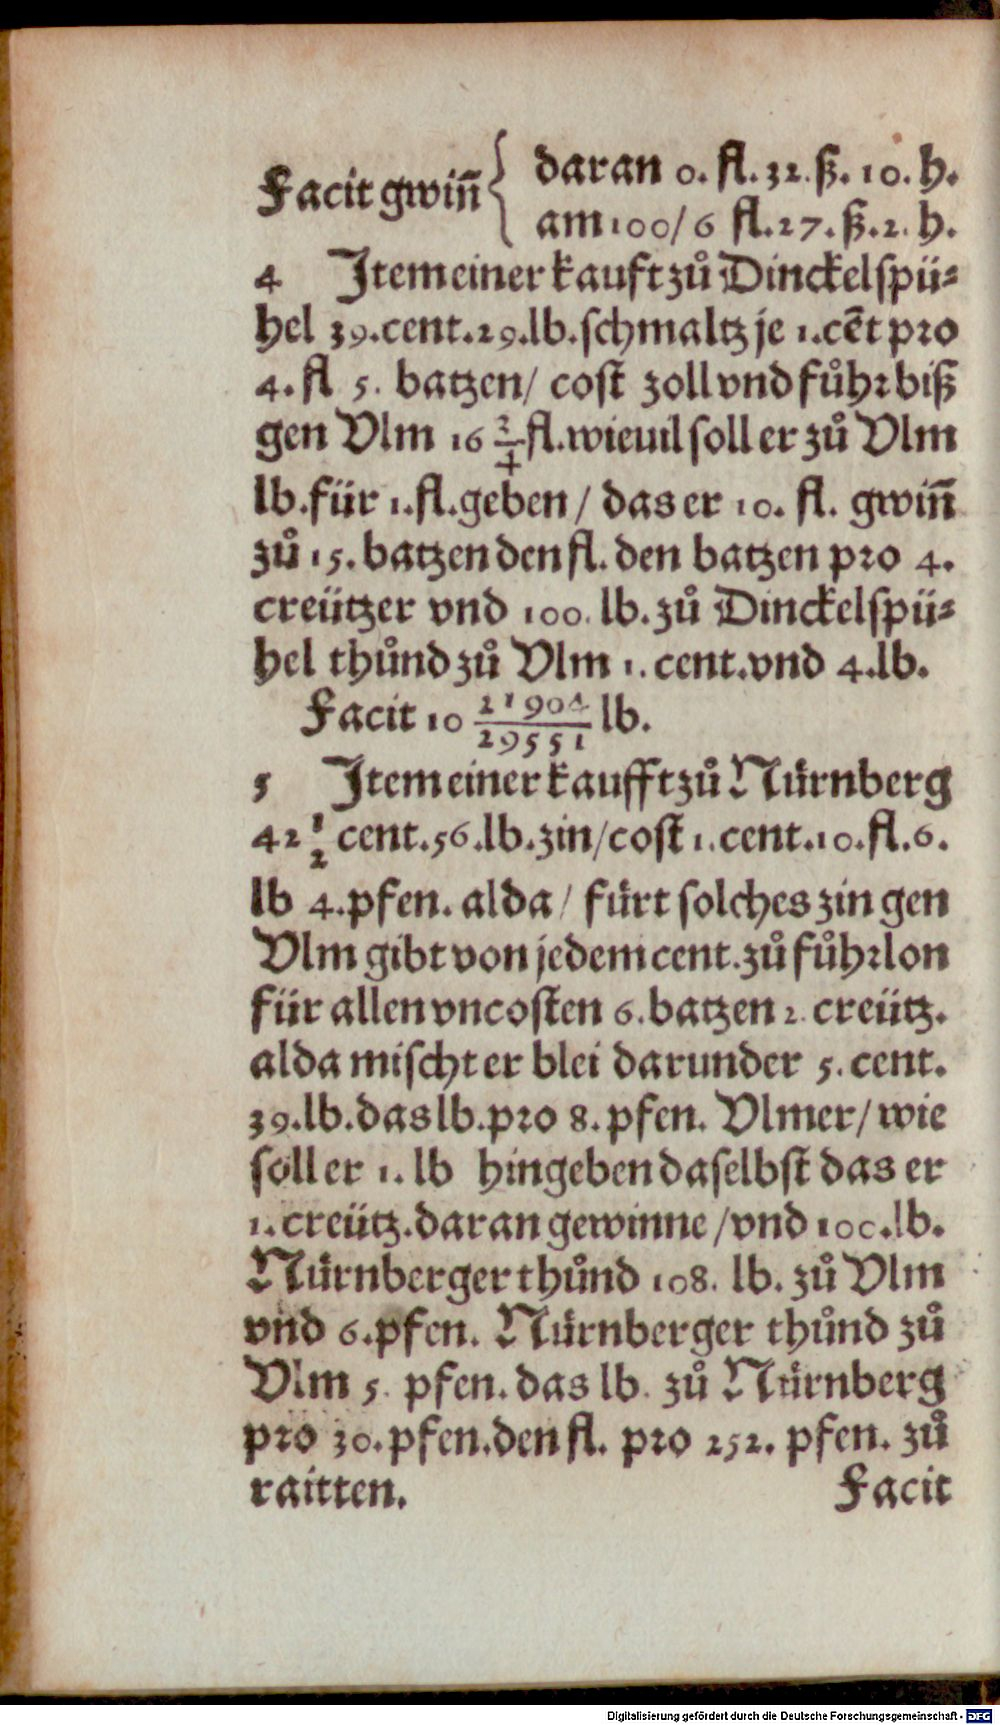 Facit gwiñ { daran 0. fl. 32. ß. 10. h.
am 100/ 6 fl. 27. ß. 2. h.
4 Item einer kauft zů Dinckelspü⸗
hel 39. cent. 29. lb. schmaltz je 1. cẽt pro
4. fl 5. batzen/ cost zoll vnd fůhr biß
gen Vlm 16 3/4 fl. wieuil soll er zů Vlm
lb. für 1. fl. geben / das er 10. fl. gwiñ
zů 15. batzen den fl. den batzen pro 4.
creützer vnd 100. lb. zů Dinckelspü⸗
hel thůnd zů Vlm 1. cent. vnd 4. lb.
Facit 10 21904/29551 lb.
5 Item einer kaufft zů Nürnberg
42 1/2 cent. 56. lb. zin/ cost 1. cent. 10. fl. 6.
lb 4. pfen. alda / fürt solches zin gen
Vlm gibt von jedem cent. zů fůhrlon
für allen vncosten 6. batzen 2. creütz.
alda mischt er blei darunder 5. cent.
39. lb. das lb. pro 8. pfen. Vlmer/ wie
soll er 1. lb hingeben daselbst das er
1. creütz. daran gewinne / vnd 100. lb.
Nürnberger thůnd 108. lb. zů Vlm
vnd 6. pfen. Nürnberger thůnd zů
Vlm 5. pfen. das lb. zů Nürnberg
pro 30. pfen. den fl. pro 252. pfen. zů
raitten. Facit
Digitalisierung gefördert durch die Deutsche Forschungsgemeinschaft - DFG